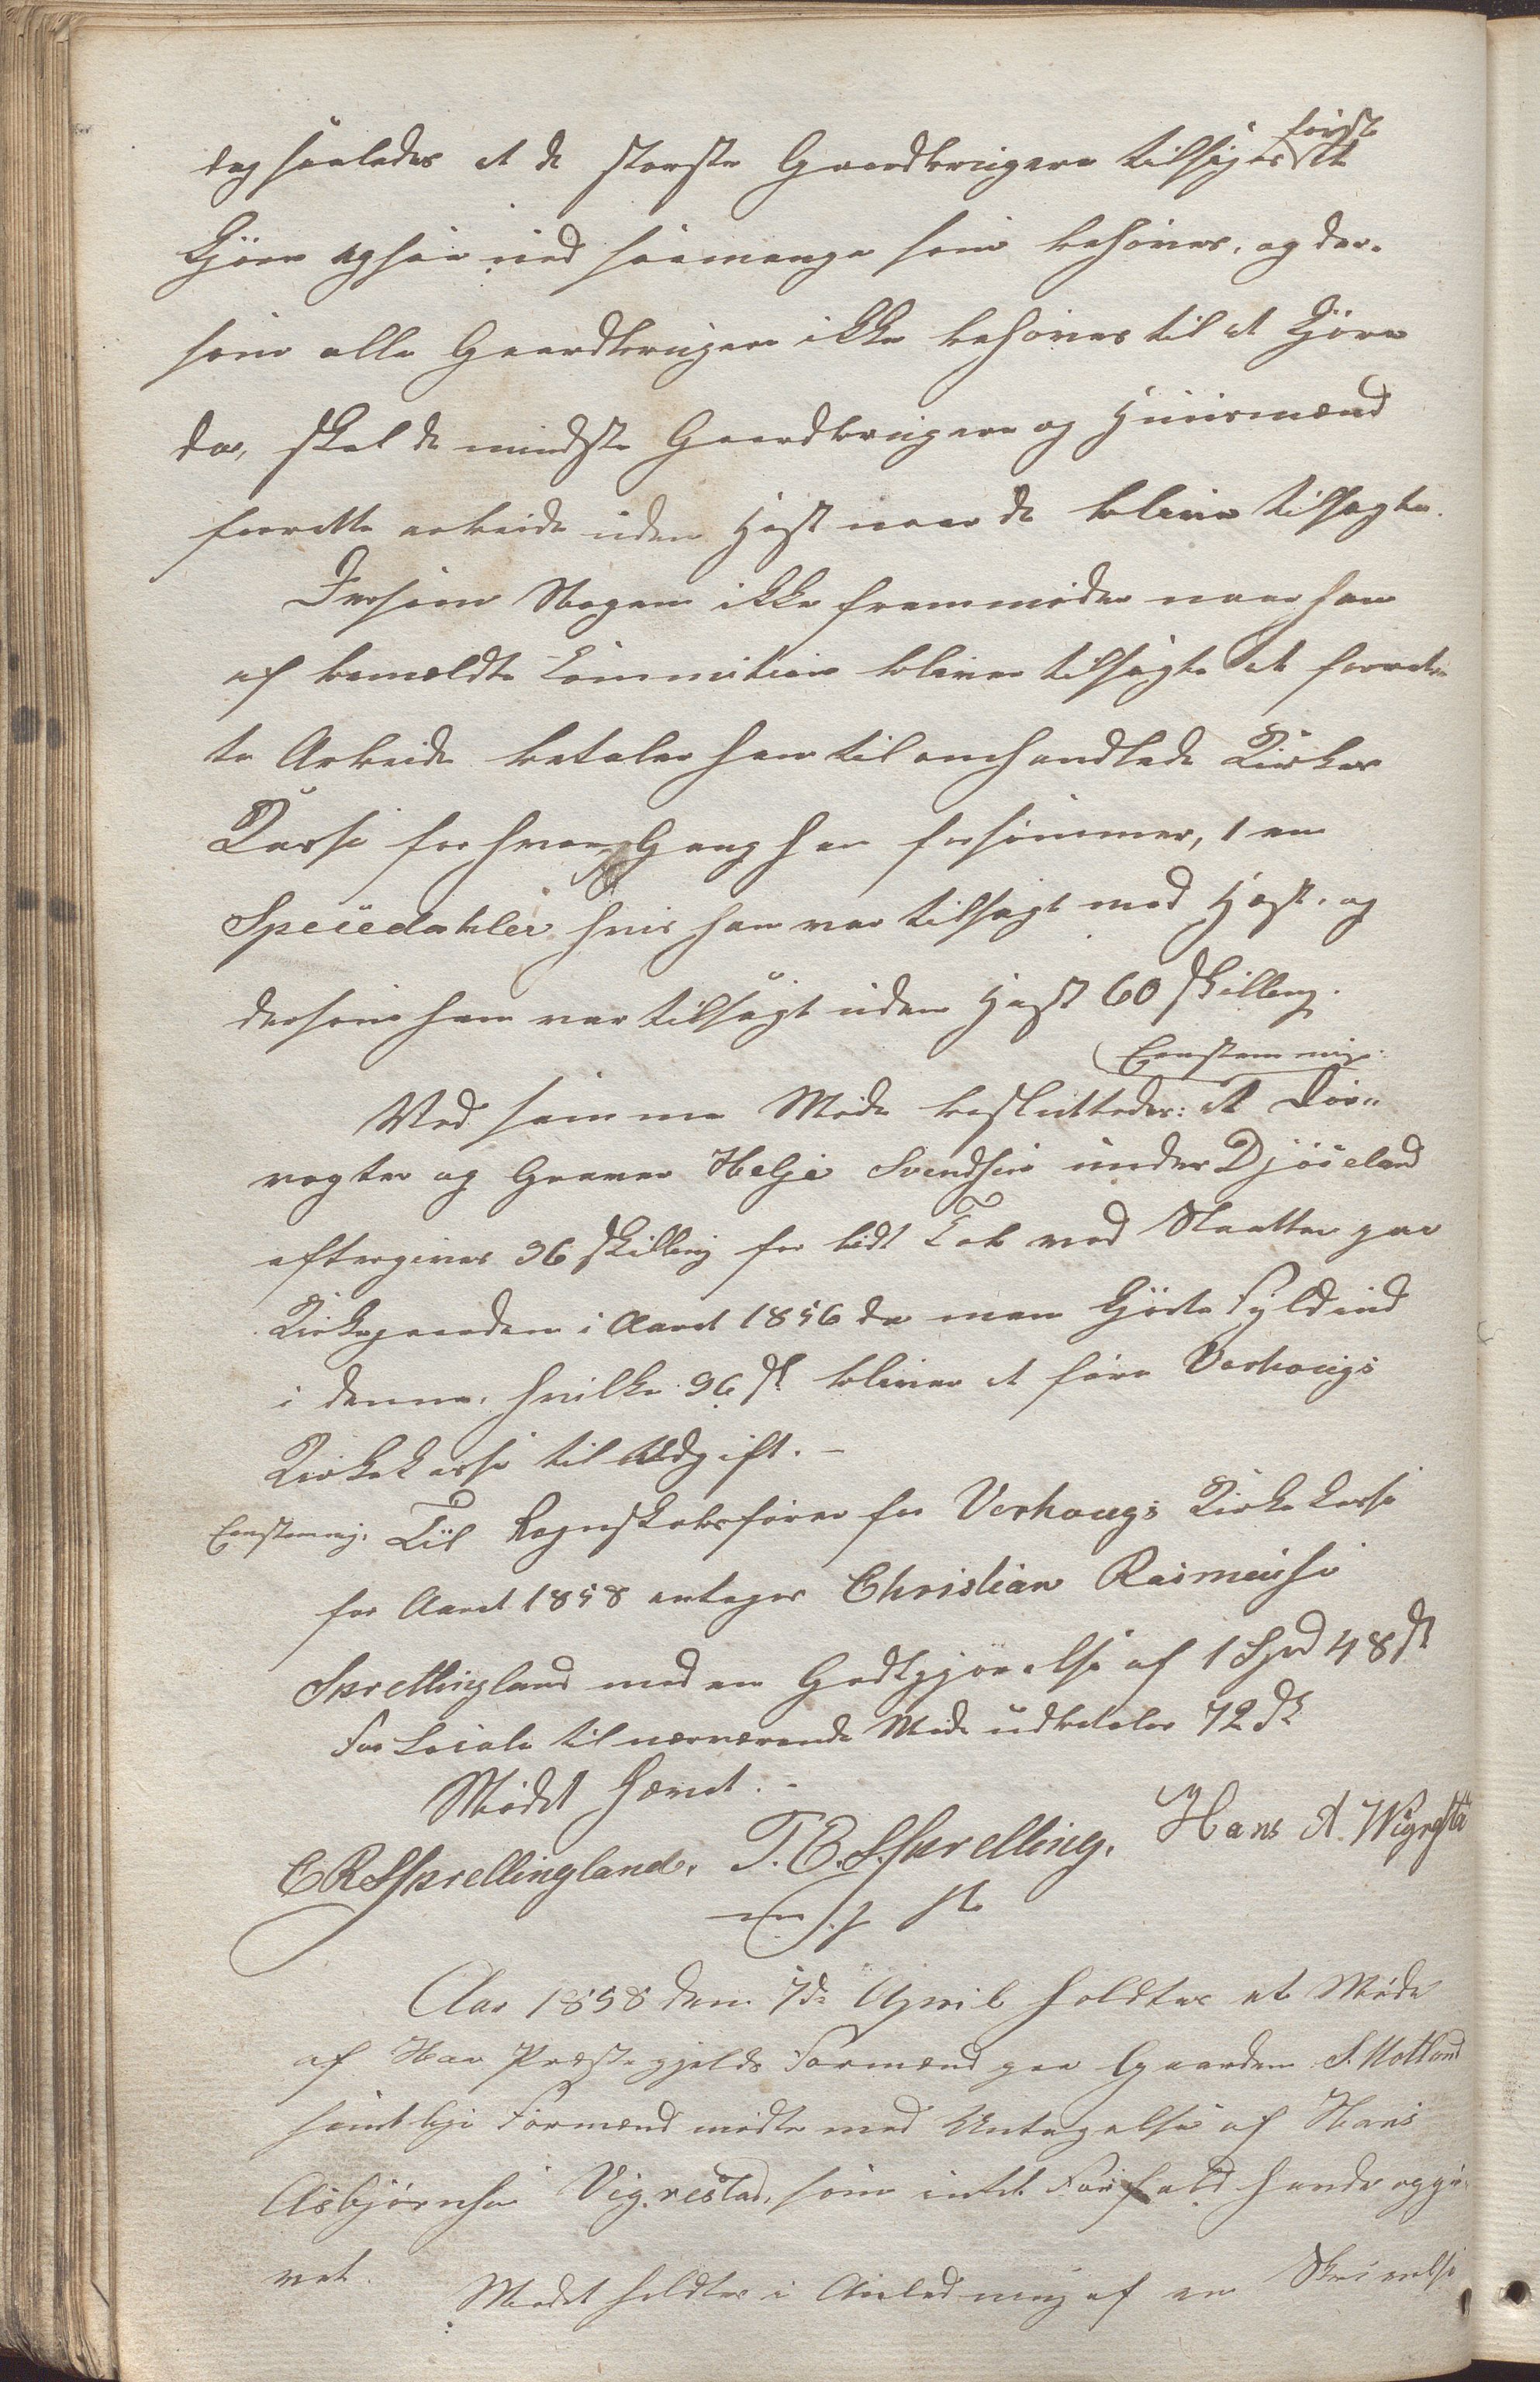 dog saaledes at de störste Gaardbrugere tilsiges först at
Kjöre ogsaa ind saamange som behöves, og der-
som alle Gaardbrugere ikke behöves til at Kjöre
da, skal de mindste Gaardbrugere og Huusmænd
forrette arbeide uden Hest naar de blive tilsagte.
Dersom Nogen ikke fremmöder naar han
af bemældte Commition bliver tilsagte at forret-
te Arbeide betaler han til omhandlede Kirkes
Kasse for hver Gang han forsömmer, 1 en
Speciedahler hvis han var tilsagt med Hest, og
dersom han var tilsagt uden Hest 60 skilling.
Eenstemmig
Ved samme Möde besluttedes: at Dör-
vogter og Graver Helje Svendsen under Djöseland
eftergives 96 skilling for lidt Tab ved Slaatten paa
Kirkegaarden i Aaret 1856 da man kjörte Fyld ind
i denne, hvilke 96 sk bliver at före Varhougs
Kirkekasse til Udgift. -
Eenstemmig. Til Regnskabsförer for Varhougs Kirkekasse
for Aaret 1858 antages Christian Rasmusse
Skretlingland med en Godtgjörelse af 1 Spd 48 sk
For Locale til nærværende Möde udbetales 72 sk
Mödet hævet. -
C R Skrellingland. T. E. S. Skrelling. Hans A. Wigrestad
m. f. P.
Aar 1858 den 7de April holdtes et Möde
af Haa Præstegjelds Formænd paa Gaarden S. Motland
samtlige Formænd mödte med Untagelse af Hans
Asbjörnsen Vigrestad, som intet Forfald havde opgi-
vet.
Mödet holdtes i Anledning af en Skrivelse